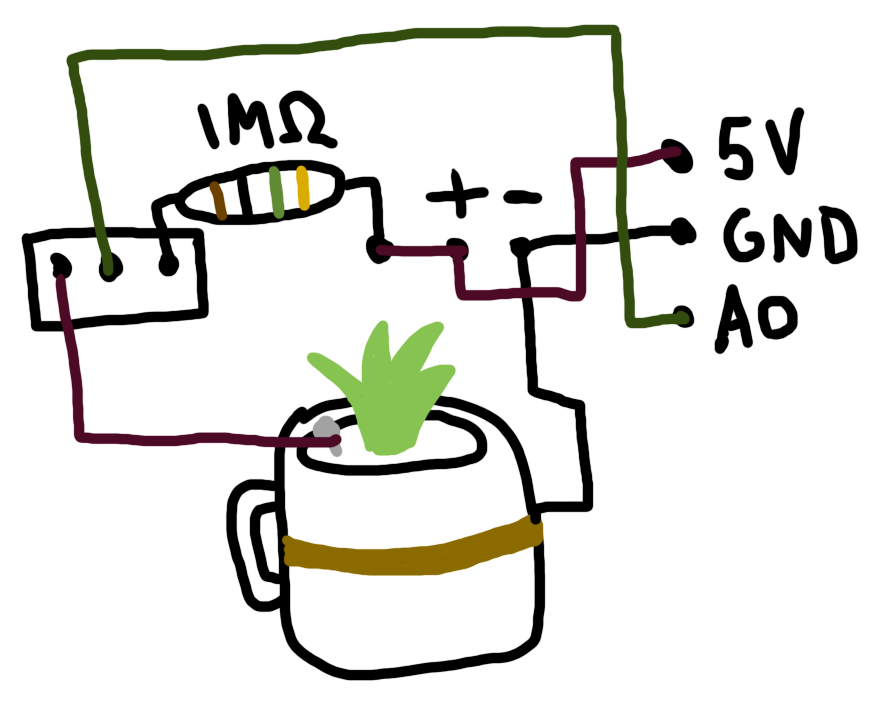 1MΩ
+ -
5V
GND
A0